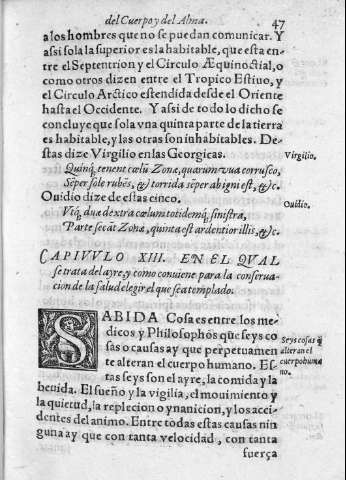 del Cuerpo y del Alma. 47
a los hombres que no se puedan comunicar. Y
assi sola la superior es la habitable, que esta en-
tre el Septentrion y el Circulo Æquinoctial, o
como otros dizen entre el Tropico Estiuo, y
el Circulo Arctico estendida desde el Oriente
hasta el Occidente. Y assi de todo lo dicho se
concluye que sola vna quinta parte de la tierra
es habitable, y las otras son inhabitables. De-
stas dize Virgilio en las Georgicas.
Virgilio.
Quinq; tenent cœlũ Zonæ, quarum vna corrusco,
Sẽper sole rubẽs, & torrida sẽper ab igni est, &c.
Ouidio dize de estas cinco.
Ouidio.
Vtq; duæ dextra cœlum totidemq; sinistra,
Parte secãt Zonæ, quinta est ardentior illis, &c.
CAPITVLO XIII. EN EL QVAL
se trata del ayre, y como conuiene para la conserua-
cion de la salud elegir el que sea templado.
SABIDA Cosa es entre los me-
dicos y Philosophos que seys co
sas o causas ay que perpetuamen
te alteran el cuerpo humano. Es-
Seys cosas q̃
alteran el
cuerpo huma
no.
tas seys son el ayre, la comida y la
beuida. El sueño y la vigilia, el mouimiento y
la quietud, la replecion o ynanicion, y los acci-
dentes del animo. Entre todas estas causas nin
guna ay que con tanta velocidad, con tanta
fuerça